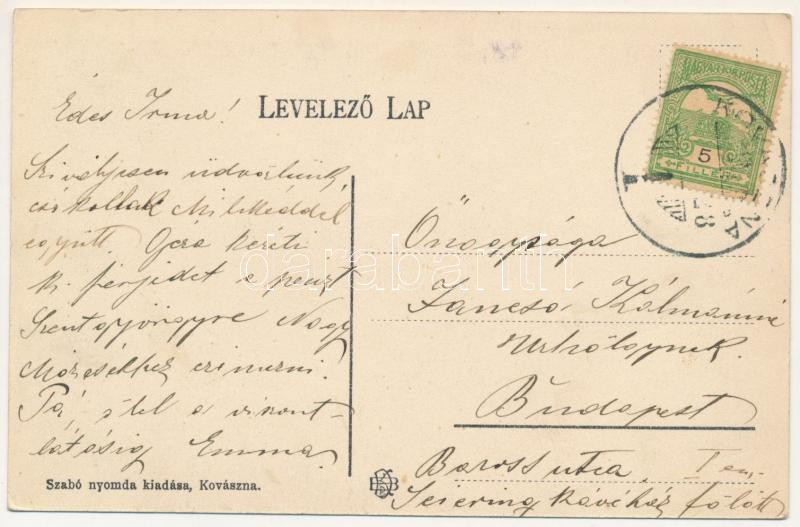 LEVELEZŐ LAP
Édes Irma!
Szivélyesen üdvözlünk,
csókollak
együtt. Géza kéreti
k. férjedet a pénzt
Szentgyörgyre Nagy
Mózesékhez czimezni.
Pá, s tel a viszont-
látásig Emma
Szabó nyomda kiadása, Kovászna.
MAGYAR KIR. POSTA
5
FILLÉR
Őnagysága
Jancsó Kálmánné
Urhölgynek.
Budapest
Baross utca. I em.
Seiering kávéház fölött
darabanth